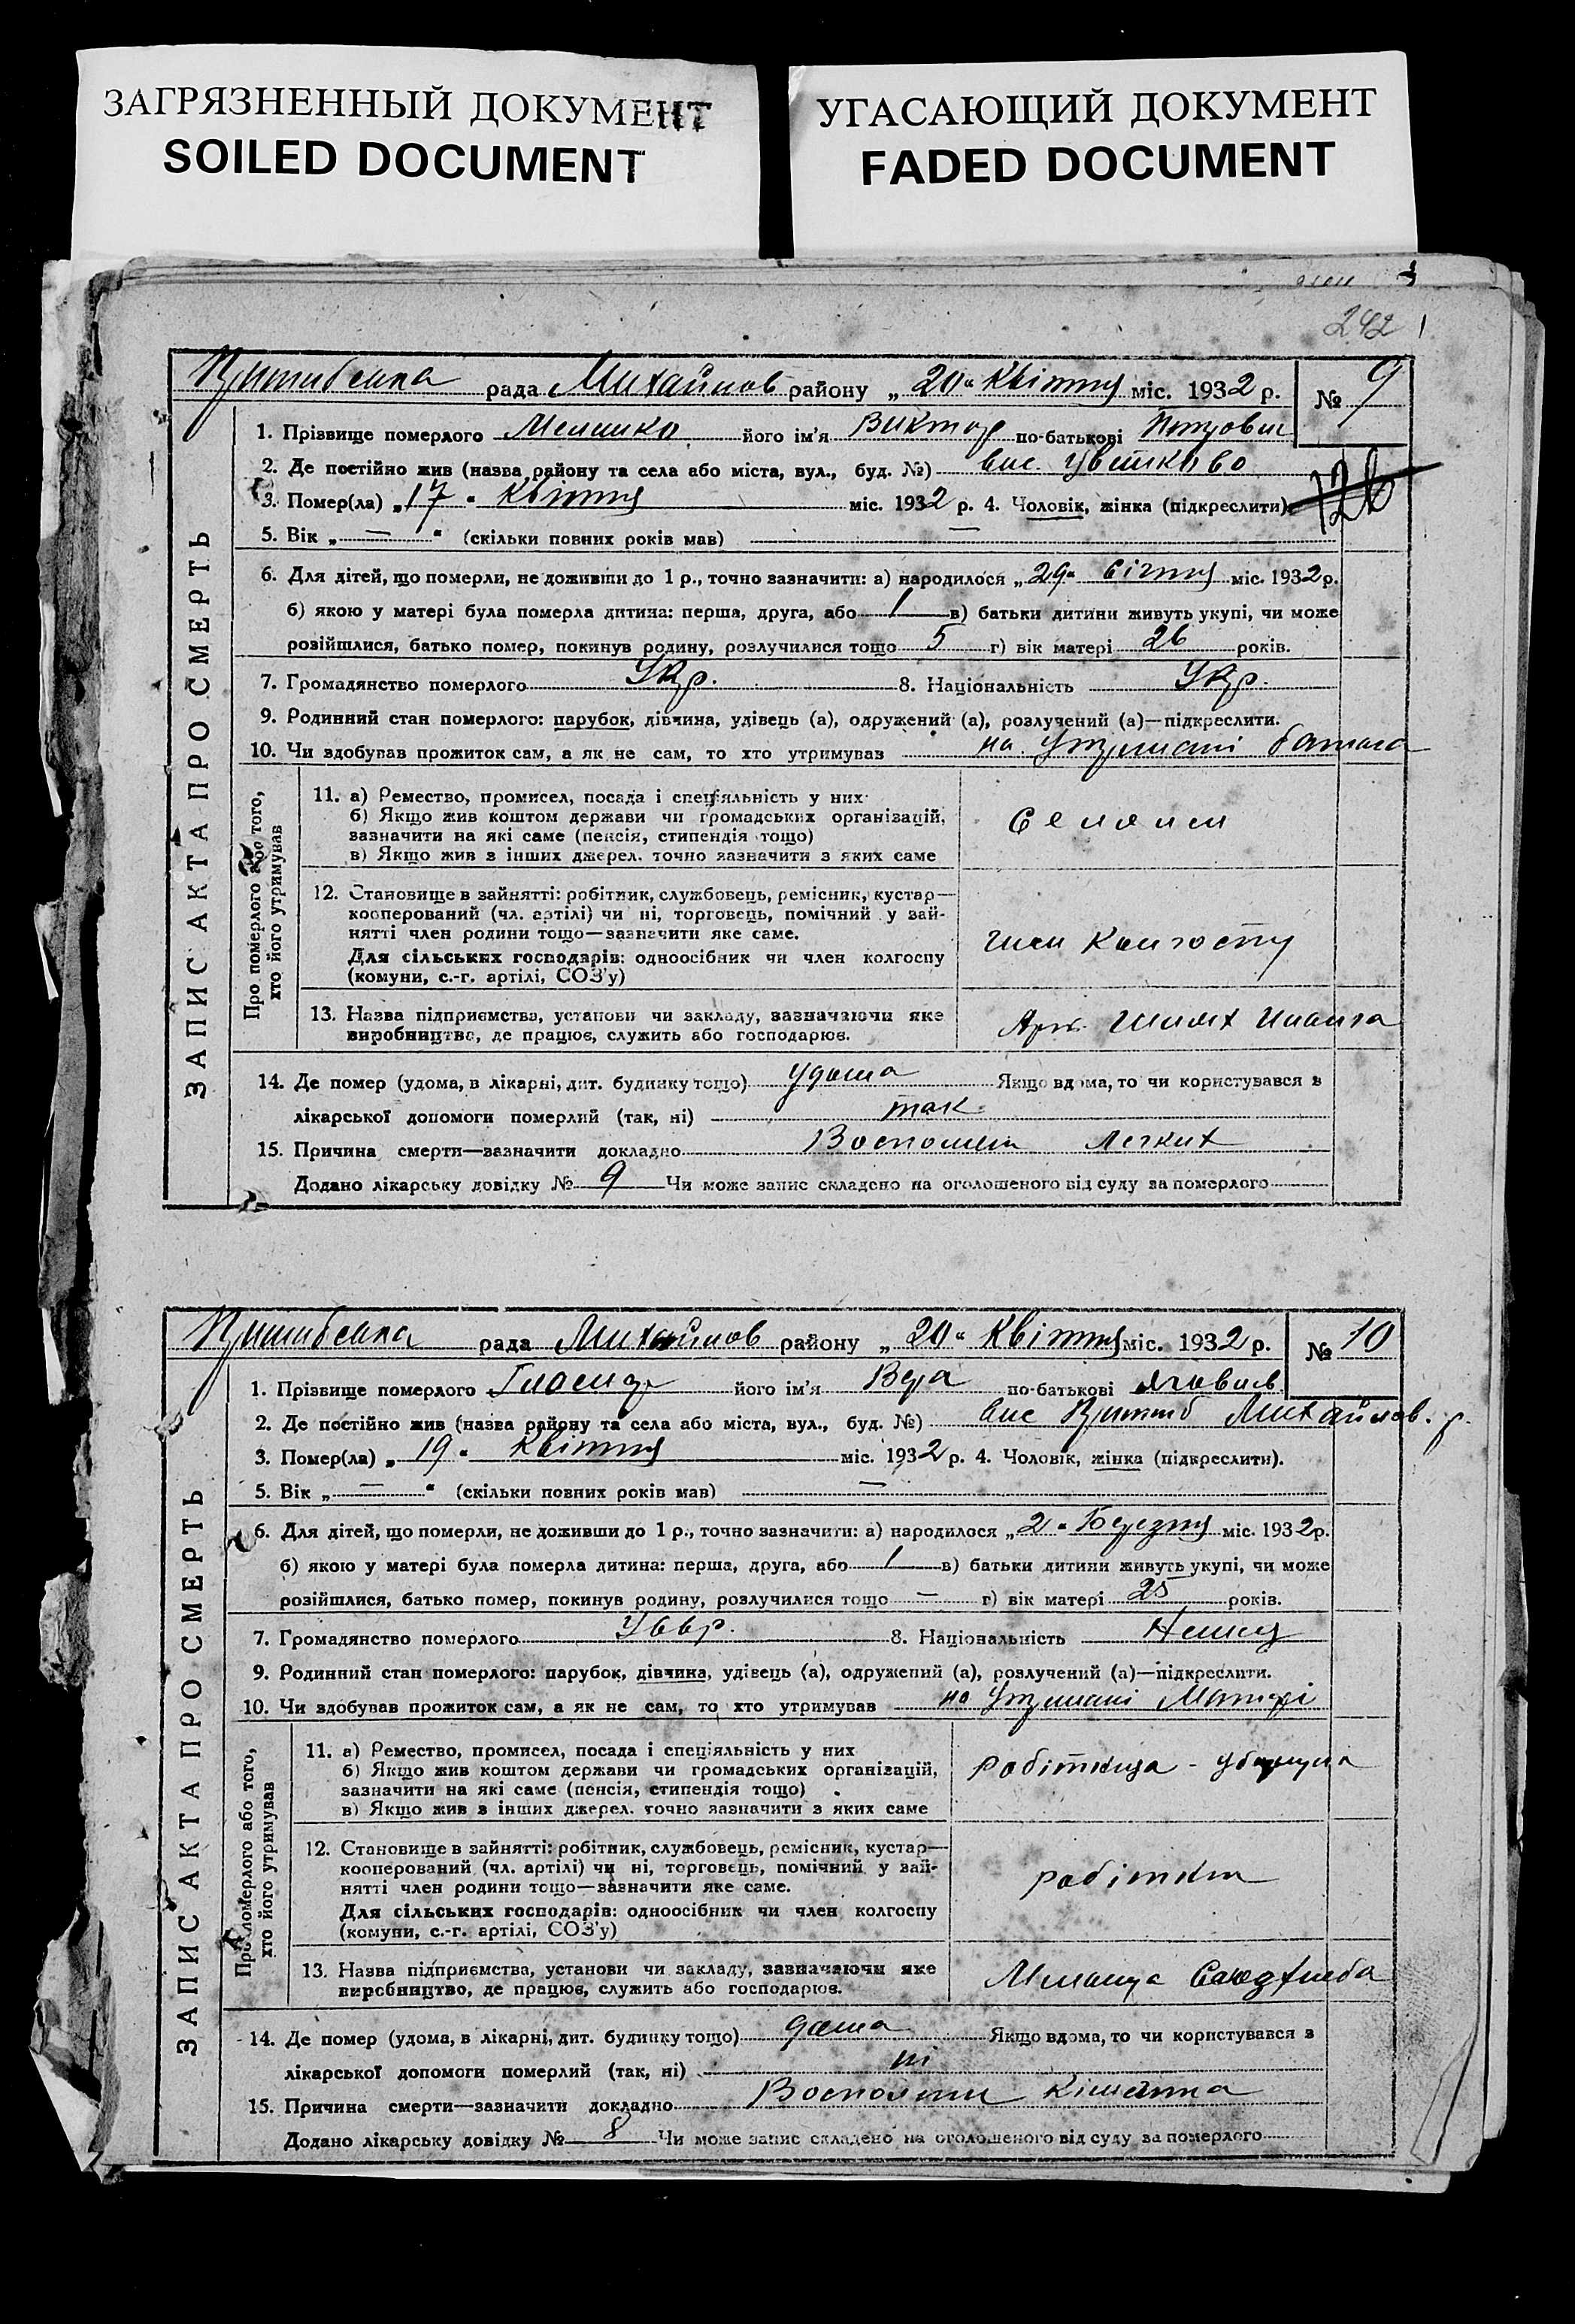 ЗАГРЯЗНЕННЫЙ ДОКУМЕНТ
SOILED DOCUMENT
УГАСАЮЩИЙ ДОКУМЕНТ
FADED DOCUMENT
242
рада Михайлов району „ 20 “ Квітня міс. 1932 р. № 9
ЗАПИС АКТА ПРО СМЕРТЬ
1. Прізвище померлого його ім'я Виктор по-батькові Петрович
2. Де постійно жив (назва району та села або міста, вул., буд. №) вис. Цветково
126
3. Помер(ла) „ 17 “ Квітня міс. 1932 р. 4. Чоловік, жінка (підкреслити).
5. Вік „ — “ (скільки повних років мав) —
6. Для дітей, що померли, не доживши до 1 р., точно зазначити: а) народилося „ 29 “ січня міс. 1932 р.
б) якою у матері була померла дитина: перша, друга, або 1 в) батьки дитини живуть укупі, чи може
розійшлися, батько помер, покинув родину, розлучилися тощо 5 г) вік матері 26 років.
7. Громадянство померлого Укр. 8. Національність Укр.
9. Родинний стан померлого: парубок, дівчина, удівець (а), одружений (а), розлучений (а)—підкреслити.
10. Чи здобував прожиток сам, а як не сам, то хто утримував на утримані батька
Про померлого або того,
хто його утримував
11. а) Ремество, промисел, посада і спеціяльність у них
б) Якщо жив коштом держави чи громадських організацій,
зазначити на які саме (пенсія, стипендія тощо)
в) Якщо жив з інших джерел, точно зазначити з яких саме
12. Становище в зайнятті: робітник, службовець, ремісник, кустар—
кооперований (чл. артілі) чи ні, торговець, помічний у зай-
нятті член родини тощо—зазначити яке саме.
Для сільських господарів: одноосібник чи член колгоспу
(комуни, с.-г. артілі, СОЗ'у)
член Колгоспу
13. Назва підприємства, установи чи закладу, зазначаючи яке
виробництво, де працює, служить або господарює.
Арт. Шлях
14. Де помер (удома, в лікарні, дит. будинку тощо) удома Якщо вдома, то чи користувався з
лікарської допомоги померлий (так, ні) так
15. Причина смерти—зазначити докладно Восполен Легких
Додано лікарську довідку № 9 Чи може запис складено на оголошеного від суду за померлого
рада Михайлов району „ 20 “ Квітня міс. 1932 р. № 10
ЗАПИС АКТА ПРО СМЕРТЬ
1. Прізвище померлого його ім'я Вера по-батькові
2. Де постійно жив (назва району та села або міста, вул., буд. №) вис Михайлов. р.
3. Помер(ла) „ 19 “ Квітня міс. 1932 р. 4. Чоловік, жінка (підкреслити).
5. Вік „ — “ (скільки повних років мав) —
6. Для дітей, що померли, не доживши до 1 р., точно зазначити: а) народилося „ 2 “ Березня міс. 1932 р.
б) якою у матері була померла дитина: перша, друга, або 1 в) батьки дитини живуть укупі, чи може
розійшлися, батько помер, покинув родину, розлучилися тощо — г) вік матері 25 років.
7. Громадянство померлого 8. Національність Немец
9. Родинний стан померлого: парубок, дівчина, удівець (а), одружений (а), розлучений (а)—підкреслити.
10. Чи здобував прожиток сам, а як не сам, то хто утримував на утримані Матері
Про померлого або того,
хто його утримував
11. а) Ремество, промисел, посада і спеціяльність у них
б) Якщо жив коштом держави чи громадських організацій,
зазначити на які саме (пенсія, стипендія тощо)
в) Якщо жив з інших джерел, точно зазначити з яких саме
робітница -
12. Становище в зайнятті: робітник, службовець, ремісник, кустар—
кооперований (чл. артілі) чи ні, торговець, помічний у зай-
нятті член родини тощо—зазначити яке саме.
Для сільських господарів: одноосібник чи член колгоспу
(комуни, с.-г. артілі, СОЗ'у)
13. Назва підприємства, установи чи закладу, зазначаючи яке
виробництво, де працює, служить або господарює.
14. Де помер (удома, в лікарні, дит. будинку тощо) дома Якщо вдома, то чи користувався з
лікарської допомоги померлий (так, ні) ні
15. Причина смерти—зазначити докладно
Додано лікарську довідку № 8 Чи може запис складено на оголошеного від суду за померлого